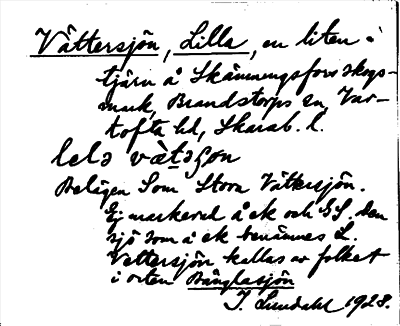 Vättersjön, Lilla, en liten
tjärn å Skämningsfors skogs-
mark, Brandstorps sn, Var-
tofta hd, Skarab. l.
lelə vàtəʃøn
Belägen Som Stora Vättersjön.
Ej markerad å ek och GS. Den
sjö som å ek benämnes L.
Vettersjön kallas av folket
i orten Bänglasjön
J. Lundahl 1928.